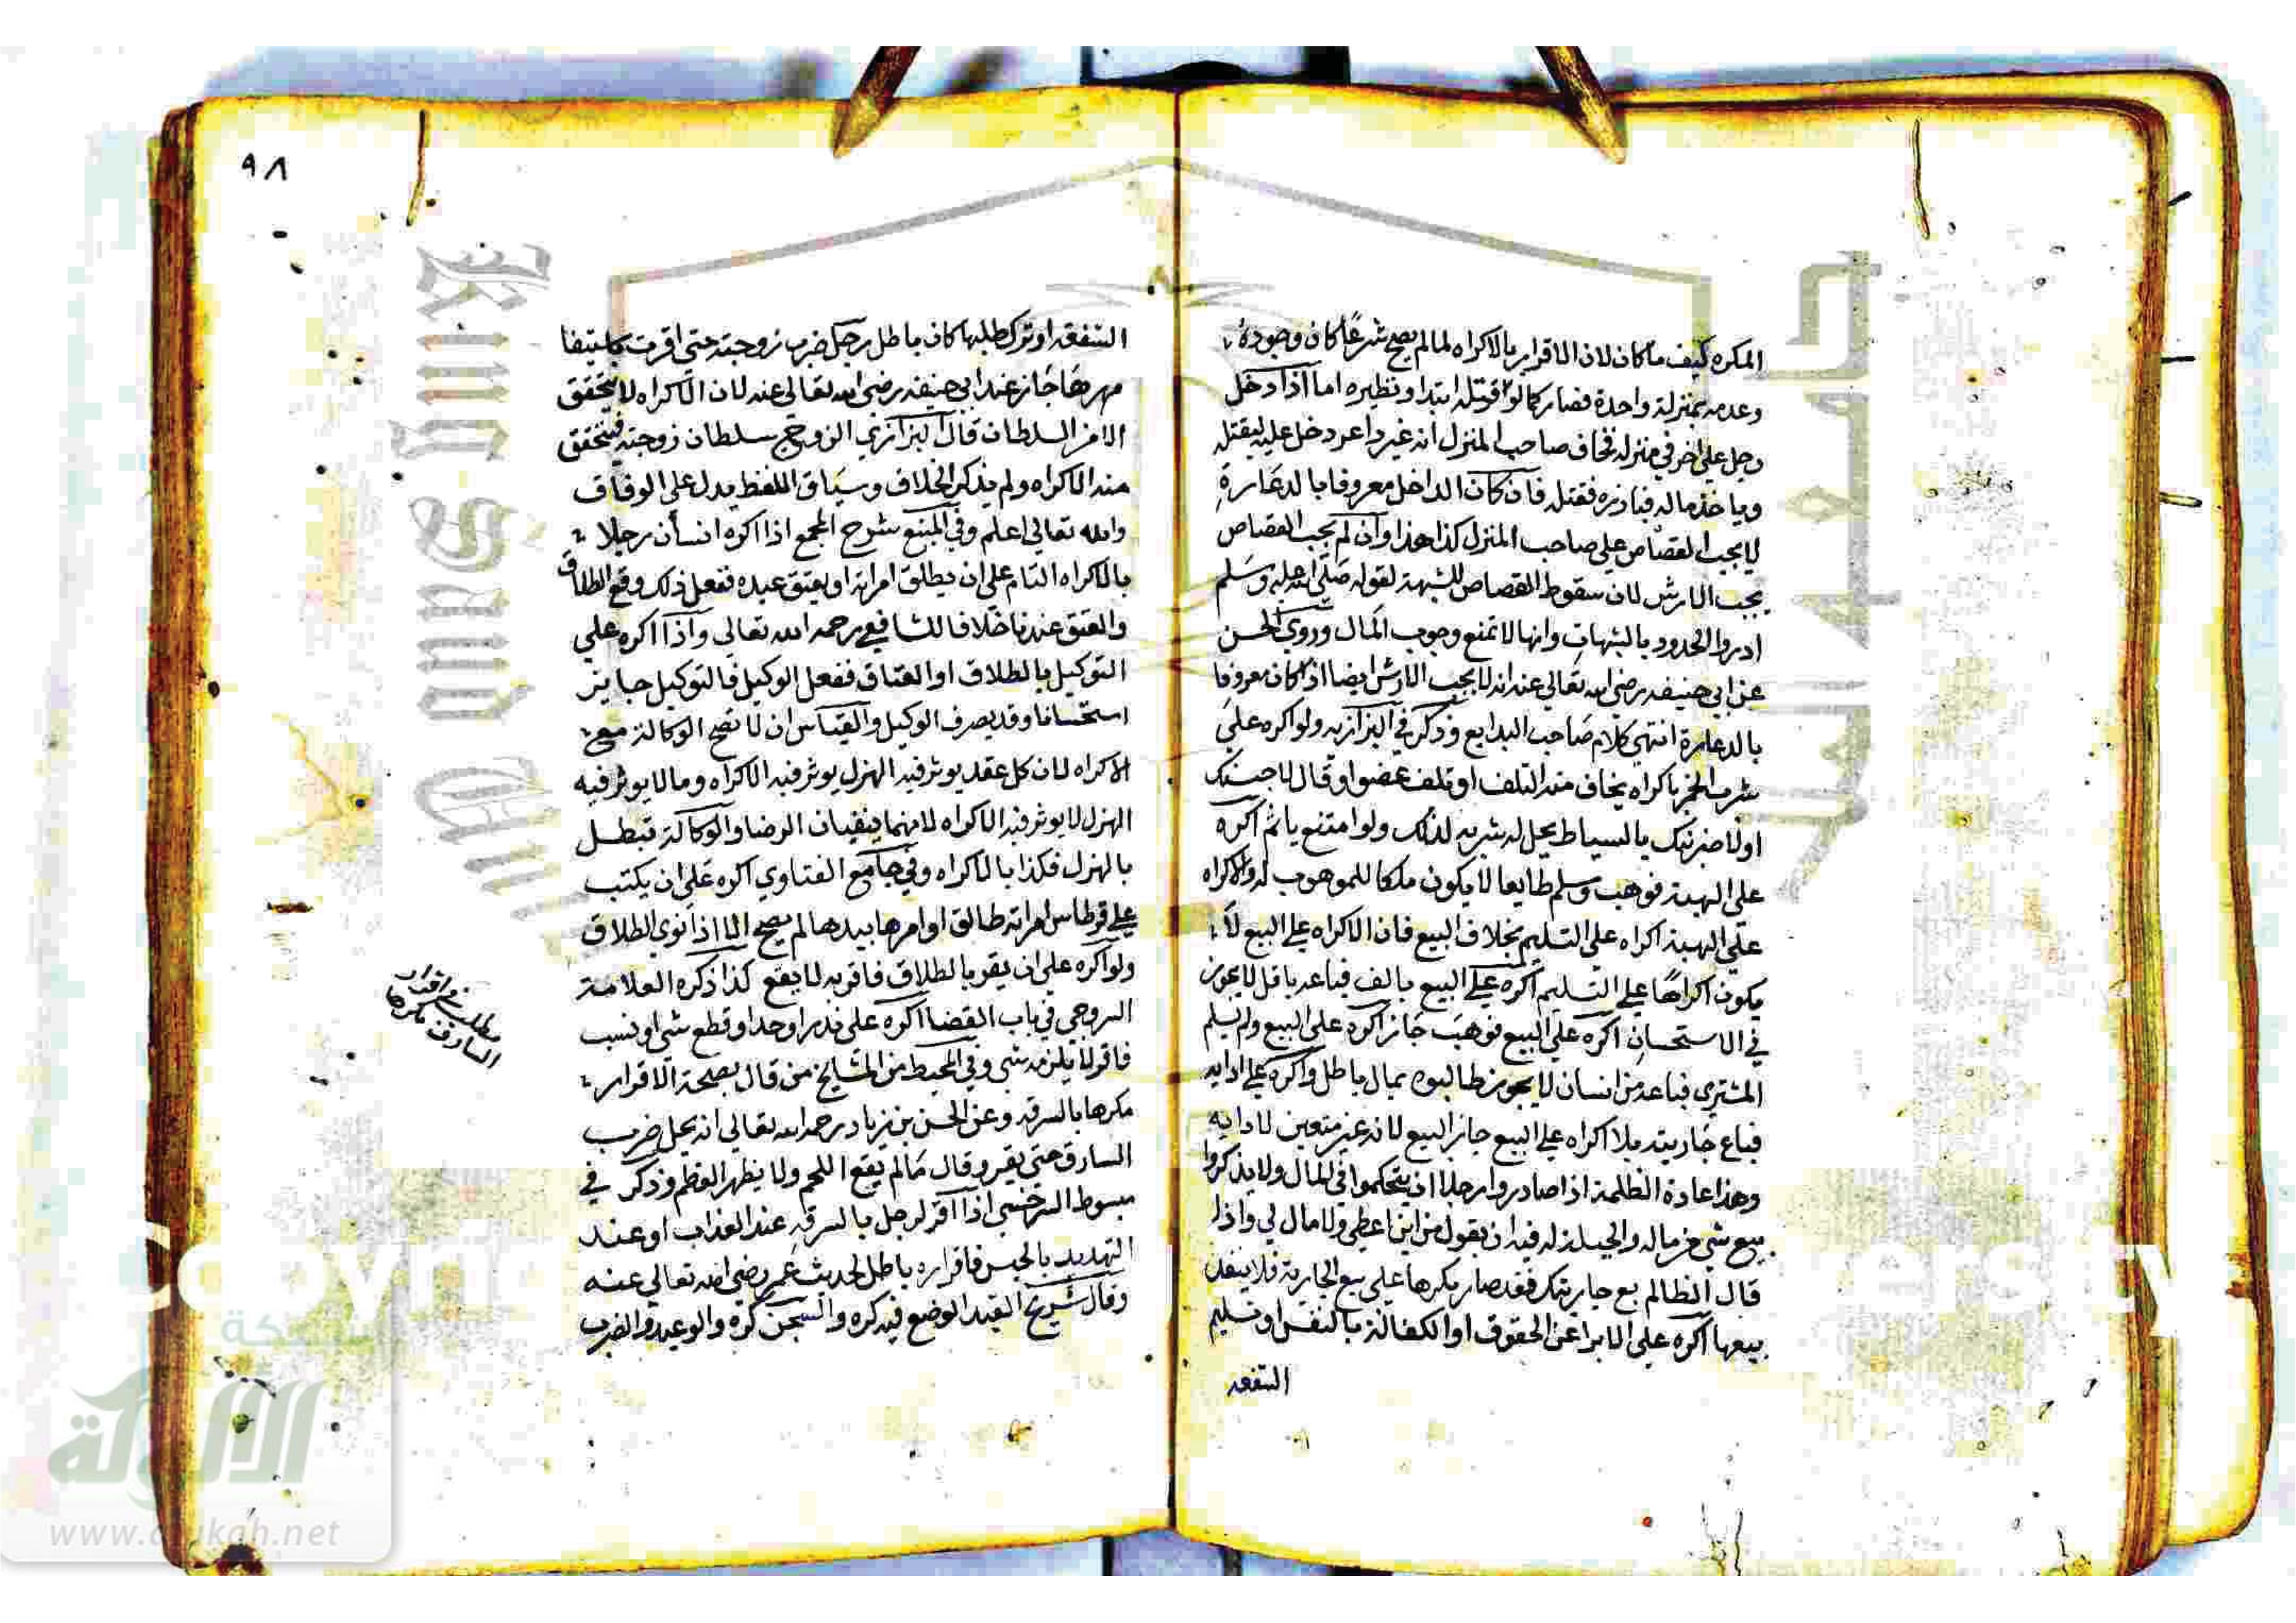 المكره كيف ما كان لان الاقرار بالاكراه لما لم يصح شرعًا كان وجوده
وعدمه بمنزلة واحدة فصار كما لو قتله ابتدا ونظيره اما اذا دخل
رجل علي اخر في منزله فخاف صاحب المنزل انه غير داعر دخل عليه ليقتله
وياخذ ماله فبادره فقتله فان كان الداخل معروفا بالدعارة
لا يجب القصاص علي صاحب المنزل كذا هذا وان لم يجب القصاص
يجب الارش لان سقوط القصاص للشبهة لقوله صلي الله عليه وسلم
ادروا الحدود بالشبهات وانها لا تمنع وجوب المال وروي الحسن
عن ابي حنيفه رضي الله تعالي عنه انه لا يجب الارش ايضا اذا كان معروفا
بالدعارة انتهي كلام صاحب البدايع وذكر في البزازيه ولو اكره علي
شرب الخمر باكراه يخاف منه التلف او تلف عضو او قال لاحبسنك
اولاضربنك بالسياط يحل له شربه لذلك ولو امتنع ياثم اكره
علي الهبة فوهب وسلم طايعا لا يكون ملكا للموهوب له والاكراه
علي الهبة اكراه علي التسليم بخلاف البيع فان الاكراه علي البيع لا
يكون اكراها علي التسليم اكره علي البيع بالف فباعه باقل لا يجوز
في الاستحسان اكره علي البيع فوهب جاز اكره علي البيع ولم يسلم
المشتري فباعه من انسان لا يجوز طالبوه بمال باطل واكره علي ادايه
فباع جاريته بلا اكراه علي البيع جاز البيع لانه غير متعين لادايه
وهذا عادة الظلمة اذا صادروا رجلا ان يتحكموا في المال ولا يذكروا
بيع شي من ماله والحيلة له فيه ان يقول من اين اعطي ولا مال لي واذا
قال الظالم بع جاريتك فقد صار مكرها علي بيع الجارية فلا ينفذ
بيعها اكره علي الابرا عن الحقوق او الكفالة بالنفس او تسليم
الشفعه
٩٨
الشفعه او ترك طلبها كان باطل رجل ضرب زوجته حتي اقرت باستيفا
مهرها جاز عند ابي حنيفه رضي الله تعالي عنه لان الاكراه لا يتحقق
الا من السلطان قال البزازي الزوج سلطان زوجته فيتحقق
منه الاكراه ولم يذكر الخلاف وسياق اللفظ يدل علي الوفاق
والله تعالي اعلم وفي المنبع شرح المجمع اذا اكره انسان رجلا
بالاكراه التام علي ان يطلق امراته او يعتق عبده ففعل ذلك وقع الطلاق
والعتق عندنا خلافا للشافعي رحمه الله تعالي واذا اكره علي
التوكيل بالطلاق او العتاق ففعل الوكيل فالتوكيل جايز
استحسانا وقد يصرف الوكيل والقياس ان لا تصح الوكالة مع
الاكراه لان كل عقد يوثر فيه الهزل يوثر فيه الاكراه وما لا يوثر فيه
الهزل لا يوثر فيه الاكراه لانهما ينفيان الرضا والوكالة تبطل
بالهزل فكذا بالاكراه وفي جامع الفتاوي اكره علي ان يكتب
علي قرطاس امراته طالق او امرها بيدها لم يصح الا اذا نوي الطلاق
ولو اكره علي ان يقر بالطلاق فاقر به لا يقع كذا ذكره العلامة
السروجي في باب القضا اكره علي نذر او حد او قطع شي او نسب
فاقر لا يلزمه شي وفي المحيط من المشايخ من قال بصحة الاقرار
مكرها بالسرقه وعن الحسن بن زياد رحمه الله تعالي انه يحل ضرب
السارق حتي يقر وقال مالم يقع اللحم ولا يظهر العظم وذكر في
مبسوط السرخسي اذا اقر لرجل بالسرقه عند العذاب او عند
التهديد بالحبس فاقراره باطل لحديث عمر رضي الله تعالي عنه
وقال شريح القيد الوضع فيه كره والسجن كره والوعيد والضرب
مطلب في اقرار
السارق مكرها